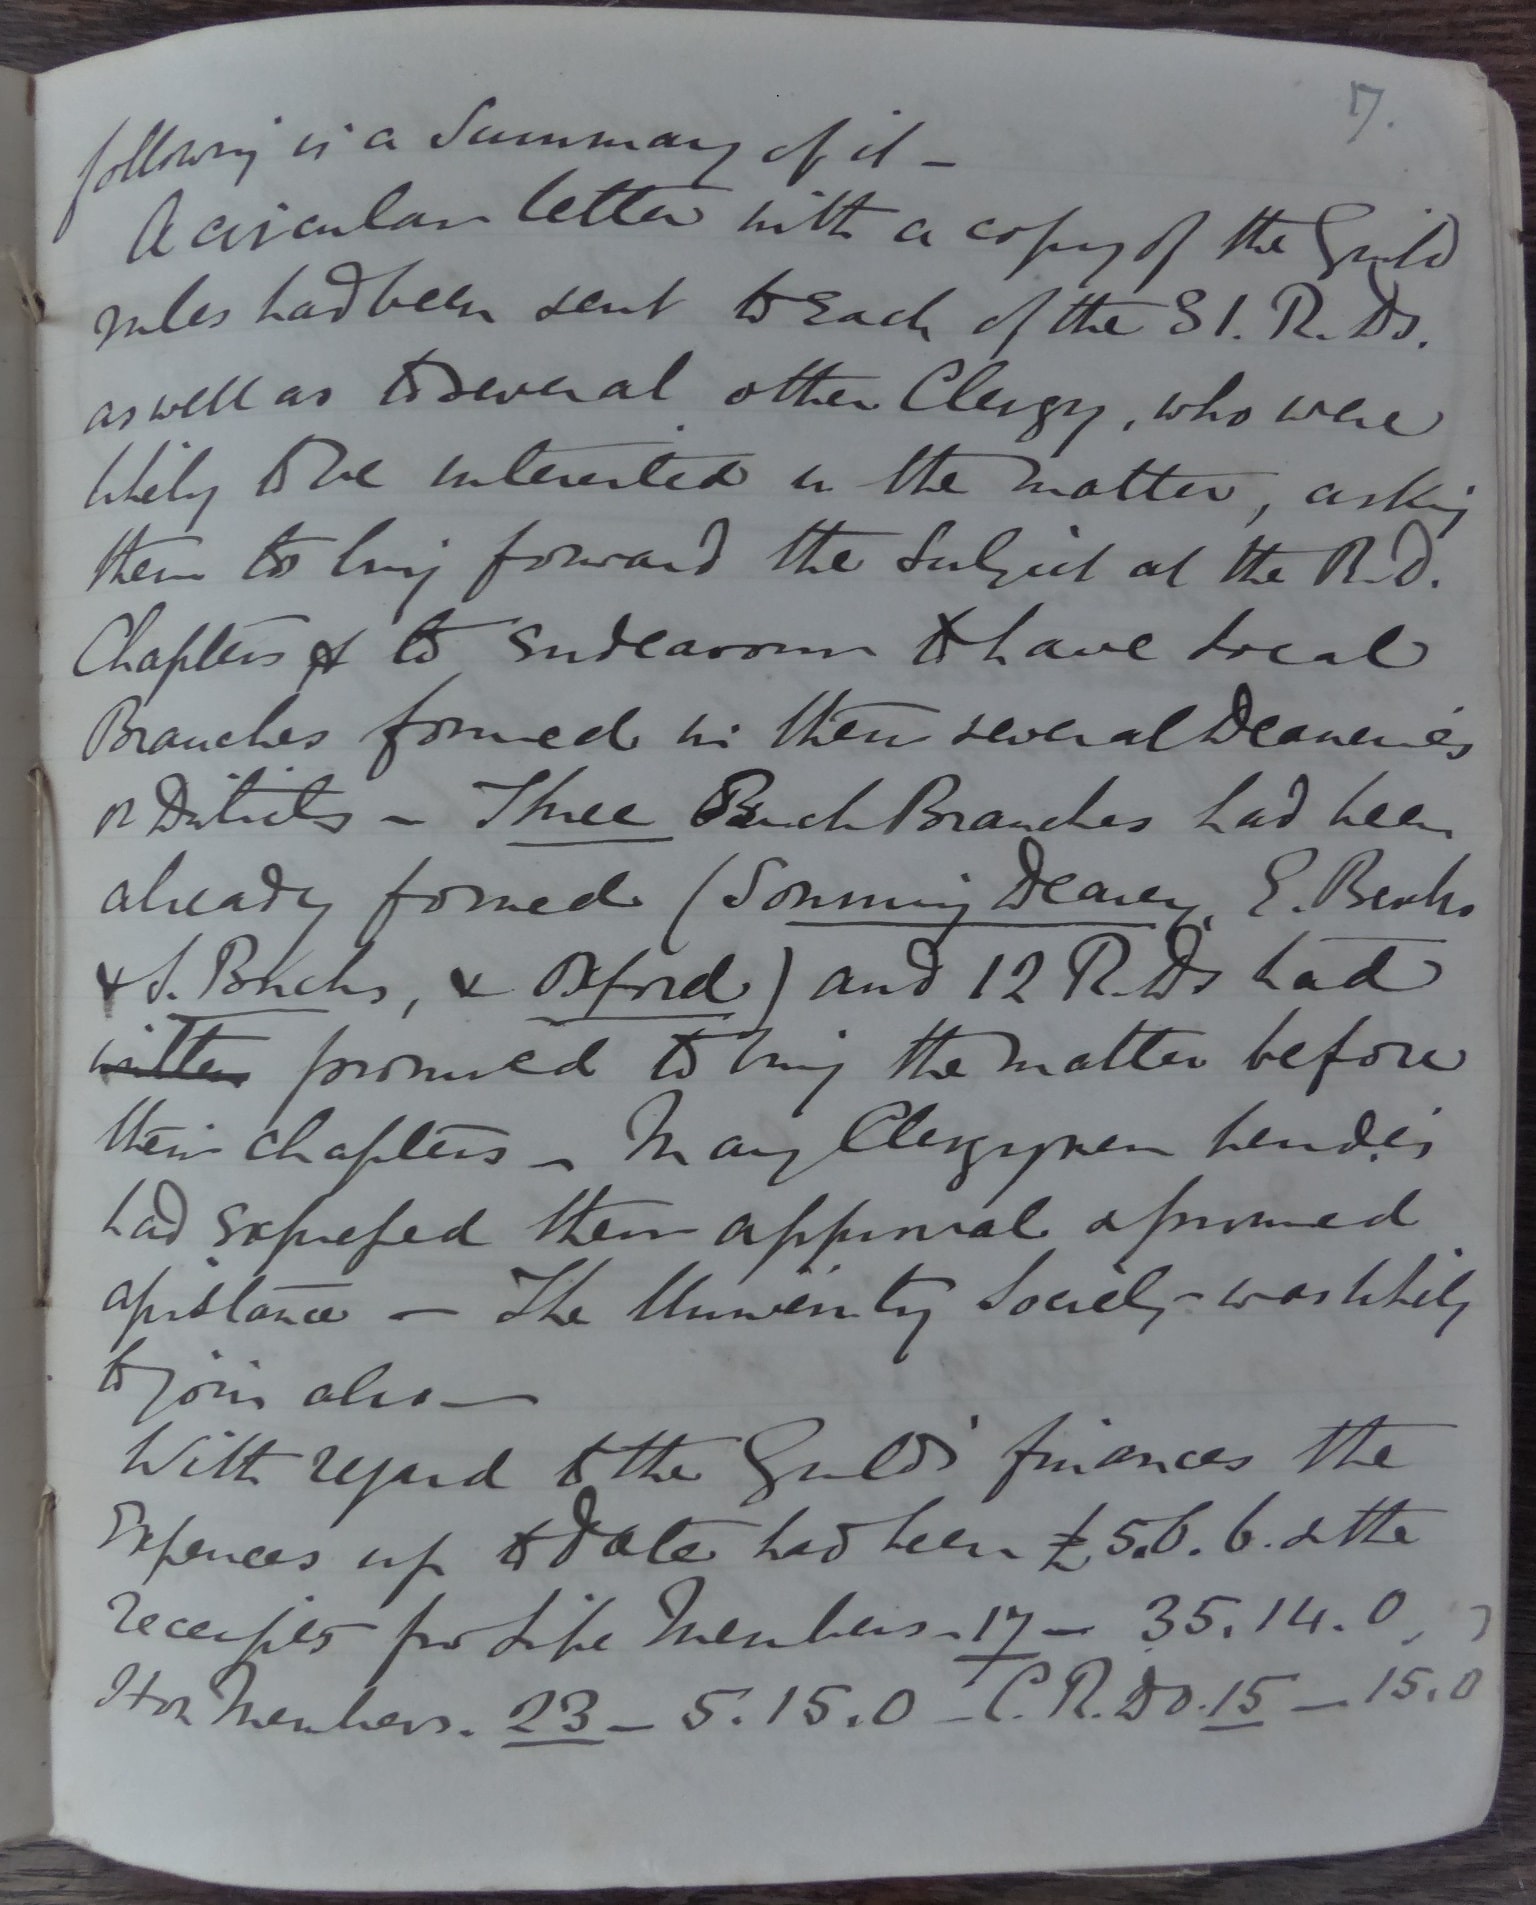 7.
following is a Summary of it –
A circular letter with a copy of the Guild
rules had been sent to Each of the 31. R. Ds.
as well as to several other Clergy, who were
likely to be interested in the matter, asking
them to bring forward the Subject at the R. D.
Chapters & to Endeavour to have Local
Branches formed in their several Deaneries
or Districts – Three Such Branches had been
already formed (Sonning Deanery, E. Berks
& S. Bucks, & Oxford) and 12 R. Ds had
written promised to bring the matter before
their chapters – Many Clergymen besides
had Expressed their approval & promised
assistance – The University Society – was likely
to join also –
With regard to the Guild's finances the
Expences up to date had been £5. 6. 6. & the
receipts for Life Members – 17 – 35. 14. 0,
Hon Members. 23 – 5. 15. 0 – C. R. Do. 15 – 15. 0